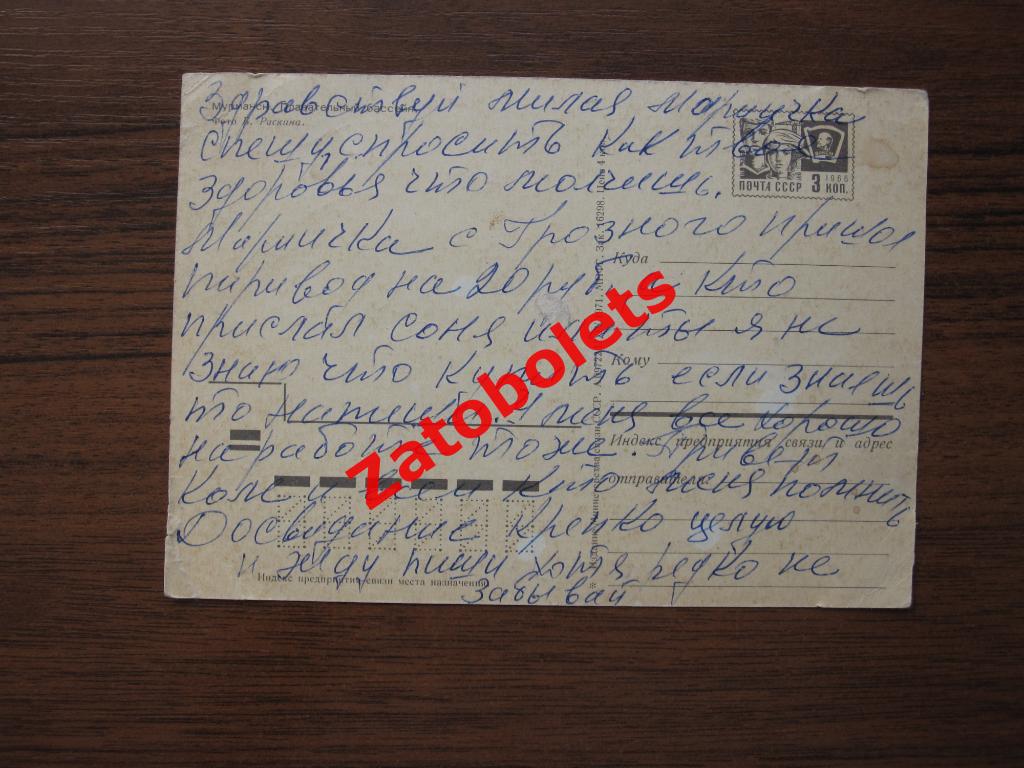 Мурманск. Плавательный бассейн.
Фото В. Раскина.
Здравствуй милая Маричка
спешу спросить как твое
здоровья что молчишь.
Маричка с Грозного пришол
пиривод на 20 руб и кто
прислал соня или ты я не
знаю что купить если знаешь
то напиши. У меня все хорошо
на работе тоже. Привет
Коле и всем кто меня помнить
Досвидание крепко целую
и жду пиши хотя редко не
забывай
ПОЧТА СССР 3 КОП. 1966
Куда
Кому
Индекс предприятия связи и адрес
отправителя
Индекс предприятия связи места назначения
Зак. 16298. Цена 4
Zatobolets